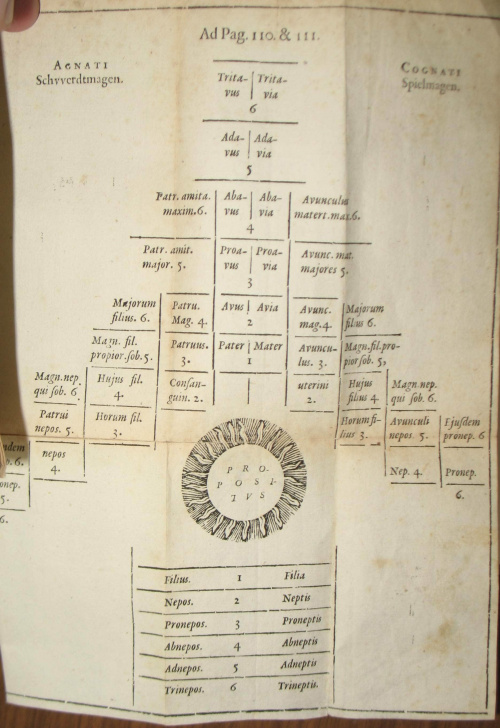 Ad Pag. 110. & 111.
AGNATI
Schvverdtmagen.
COGNATI
Spielmagen.
Trita- | Trita-
vus | via
6
Ada- | Ada-
vus | via
5
Patr. amita. | Aba- | Aba- | Avunculus
maxim. 6. | vus | via | matert. max. 6.
4
Patr. amit. | Proa- | Proa- | Avunc. mat.
major. 5. | vus | via | majores 5.
3
Majorum | Patru. | Avus | Avia | Avunc. | Majorum
filius. 6. | Mag. 4. | 2 | mag. 4. | filius 6.
Magn. fil. | Patruus. | Pater | Mater | Avuncu- | Magn. fil. pro-
propior sob. 5. | 3. | 1 | lus. 3. | pior sob. 5,
Magn. nep. | Hujus fil. | Consan- | uterini | Hujus | Magn. nep.
qui sob. 6 | 4. | guin. 2. | 2. | filius 4 | qui sob. 6.
Patrui | Horum fil. | Horum fi- | Avunculi | Ejusdem
nepos. 5. | 3. | lius 3. | nepos 5. | pronep. 6
ndem | nepos
6. | 4.
onep.
5.
6.
Nep. 4. | Pronep.
6.
PRO-
POSI-
TVS
Filius. 1 Filia
Nepos. 2 Neptis
Pronepos. 3 Proneptis
Abnepos. 4 Abneptis
Adnepos. 5 Adneptis
Trinepos. 6 Trineptis.